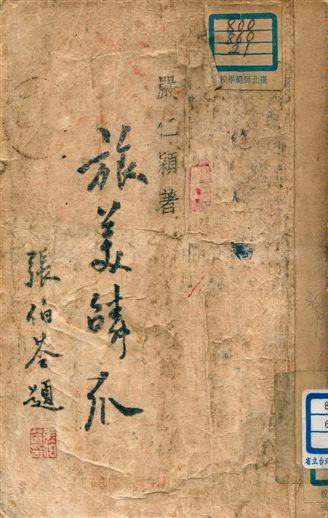 800
860
21
臺北師範學校
嚴仁穎著
旅美鱗爪
張伯苓題
8
6
省立台